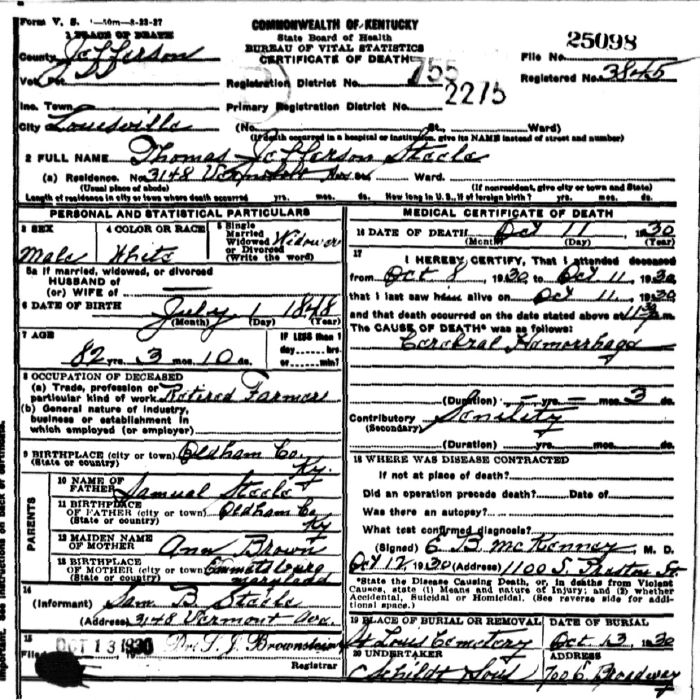 Form V. S. 1—50m—8-23-27
COMMONWEALTH OF KENTUCKY
State Board of Health
BUREAU OF VITAL STATISTICS
CERTIFICATE OF DEATH
1 PLACE OF DEATH
County Jefferson
File No. 25098
Registered No. 3845
Vot. Pct.
Registration District No. 755
Inc. Town
Primary Registration District No. 2275
City Louisville (No. St., Ward)
(If death occurred in a hospital or institution, give its NAME instead of street and number)
2 FULL NAME Thomas Jefferson Steele
(a) Residence. No. 3148 Vermont Ave St. Ward.
(Usual place of abode) (If nonresident, give city or town and State)
Length of residence in city or town where death occurred yrs. mos. ds. How long in U. S., if of foreign birth? yrs. mos. ds.
PERSONAL AND STATISTICAL PARTICULARS
3 SEX Male
4 COLOR OR RACE White
5 Single Married Widowed or Divorced (Write the word) Widower
5a If married, widowed, or divorced
HUSBAND of
(or) WIFE of —
6 DATE OF BIRTH July 1 1848
(Month) (Day) (Year)
7 AGE
82 yrs. 3 mos. 10 ds.
IF LESS than 1 day----hrs. or----min?
8 OCCUPATION OF DECEASED
(a) Trade, profession or particular kind of work Retired Farmer
(b) General nature of industry, business or establishment in which employed (or employer)
9 BIRTHPLACE (city or town) Oldham Co.
(State or country) Ky.
PARENTS
10 NAME OF FATHER Samual Steele
11 BIRTHPLACE OF FATHER (city or town) Oldham Co
(State or country) Ky
12 MAIDEN NAME OF MOTHER Ann Brown
13 BIRTHPLACE OF MOTHER (city or town) Emmetsburg
(State or country) Maryland
14
(Informant) Sam B Steele
(Address) 3148 Vermont Ave.
15
Filed OCT 13 1930 Dr. L. J. Brownstein
Registrar
MEDICAL CERTIFICATE OF DEATH
16 DATE OF DEATH Oct 11 1930
(Month) (Day) (Year)
17
I HEREBY CERTIFY, That I attended deceased
from Oct 8, 1930 to Oct 11, 1930
that I last saw him alive on Oct 11, 1930
and that death occurred on the date stated above at m.
The CAUSE OF DEATH* was as follows:
Cerebral Hemorrhage
(Duration) — yrs. — mos. 3 ds.
Contributory Senility
(Secondary)
(Duration) yrs. mos. ds.
18 WHERE WAS DISEASE CONTRACTED
If not at place of death?
Did an operation precede death? Date of
Was there an autopsy?
What test confirmed diagnosis?
(Signed) E B McKenney, M. D.
Oct 12, 1930 (Address) 1100 S. Preston St.
*State the Disease Causing Death, or, in deaths from Violent
Causes, state (1) Means and nature of Injury; and (2) whether
Accidental, Suicidal or Homicidal. (See reverse side for addi-
tional space.)
19 PLACE OF BURIAL OR REMOVAL
St Louis Cemetery
DATE OF BURIAL
Oct 13 1930
20 UNDERTAKER
Schildt Sons
ADDRESS
700 E Broadway